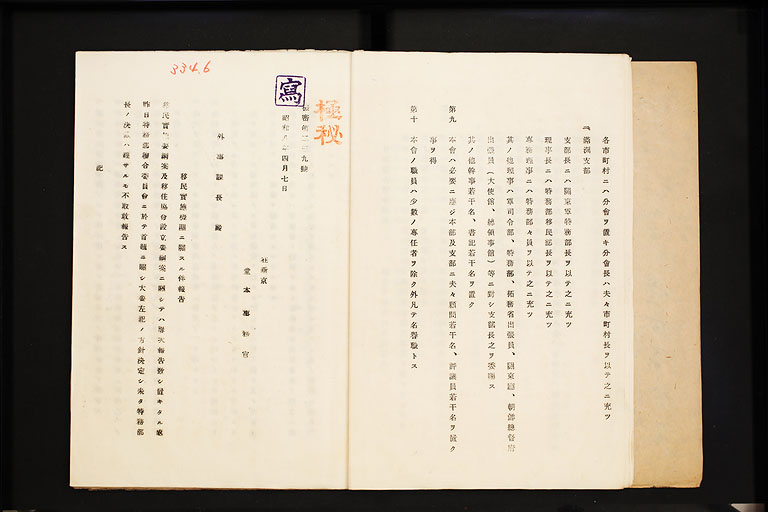 各市町村ニハ分會ヲ置キ分會長ハ夫々市町村長ヲ以テ之ニ充ツ
二、滿洲支部
支部長ニハ關東軍特務部長ヲ以テ之ニ充ツ
理事長ニハ特務部移民部長ヲ以テ之ニ充ツ
專務理事ニハ特務部々員ヲ以テ之ニ充ツ
其ノ他理事ハ軍司令部、特務部、拓務省出張員、關東廳、朝鮮總督府
出張員(大使館、總領事館)等ニ對シ支部長之ヲ委囑ス
其ノ他幹事若干名、書記若干名ヲ置ク
第九 本會ハ必要ニ應ジ本部及支部ニ夫々顧問若干名、評議員若干名ヲ置ク
事ヲ得
第十 本會ノ職員ハ少數ノ專任者ヲ除ク外凡テ名譽職トス
極秘
寫
334.6
密第二三九號
昭和八年四月七日
在新京
堂本事務官
外事課長 殿
移民實施機關ニ關スル件報告
移民實施要綱案及移住協會設立要綱案ニ關シテハ屢次報告致シ置キタル處
昨日特務部聯合委員會ニ於テ首題ニ關シ大要左記ノ方針決定シ未タ特務部
長ノ決裁ハ經サルモ不取敢報告ス
記